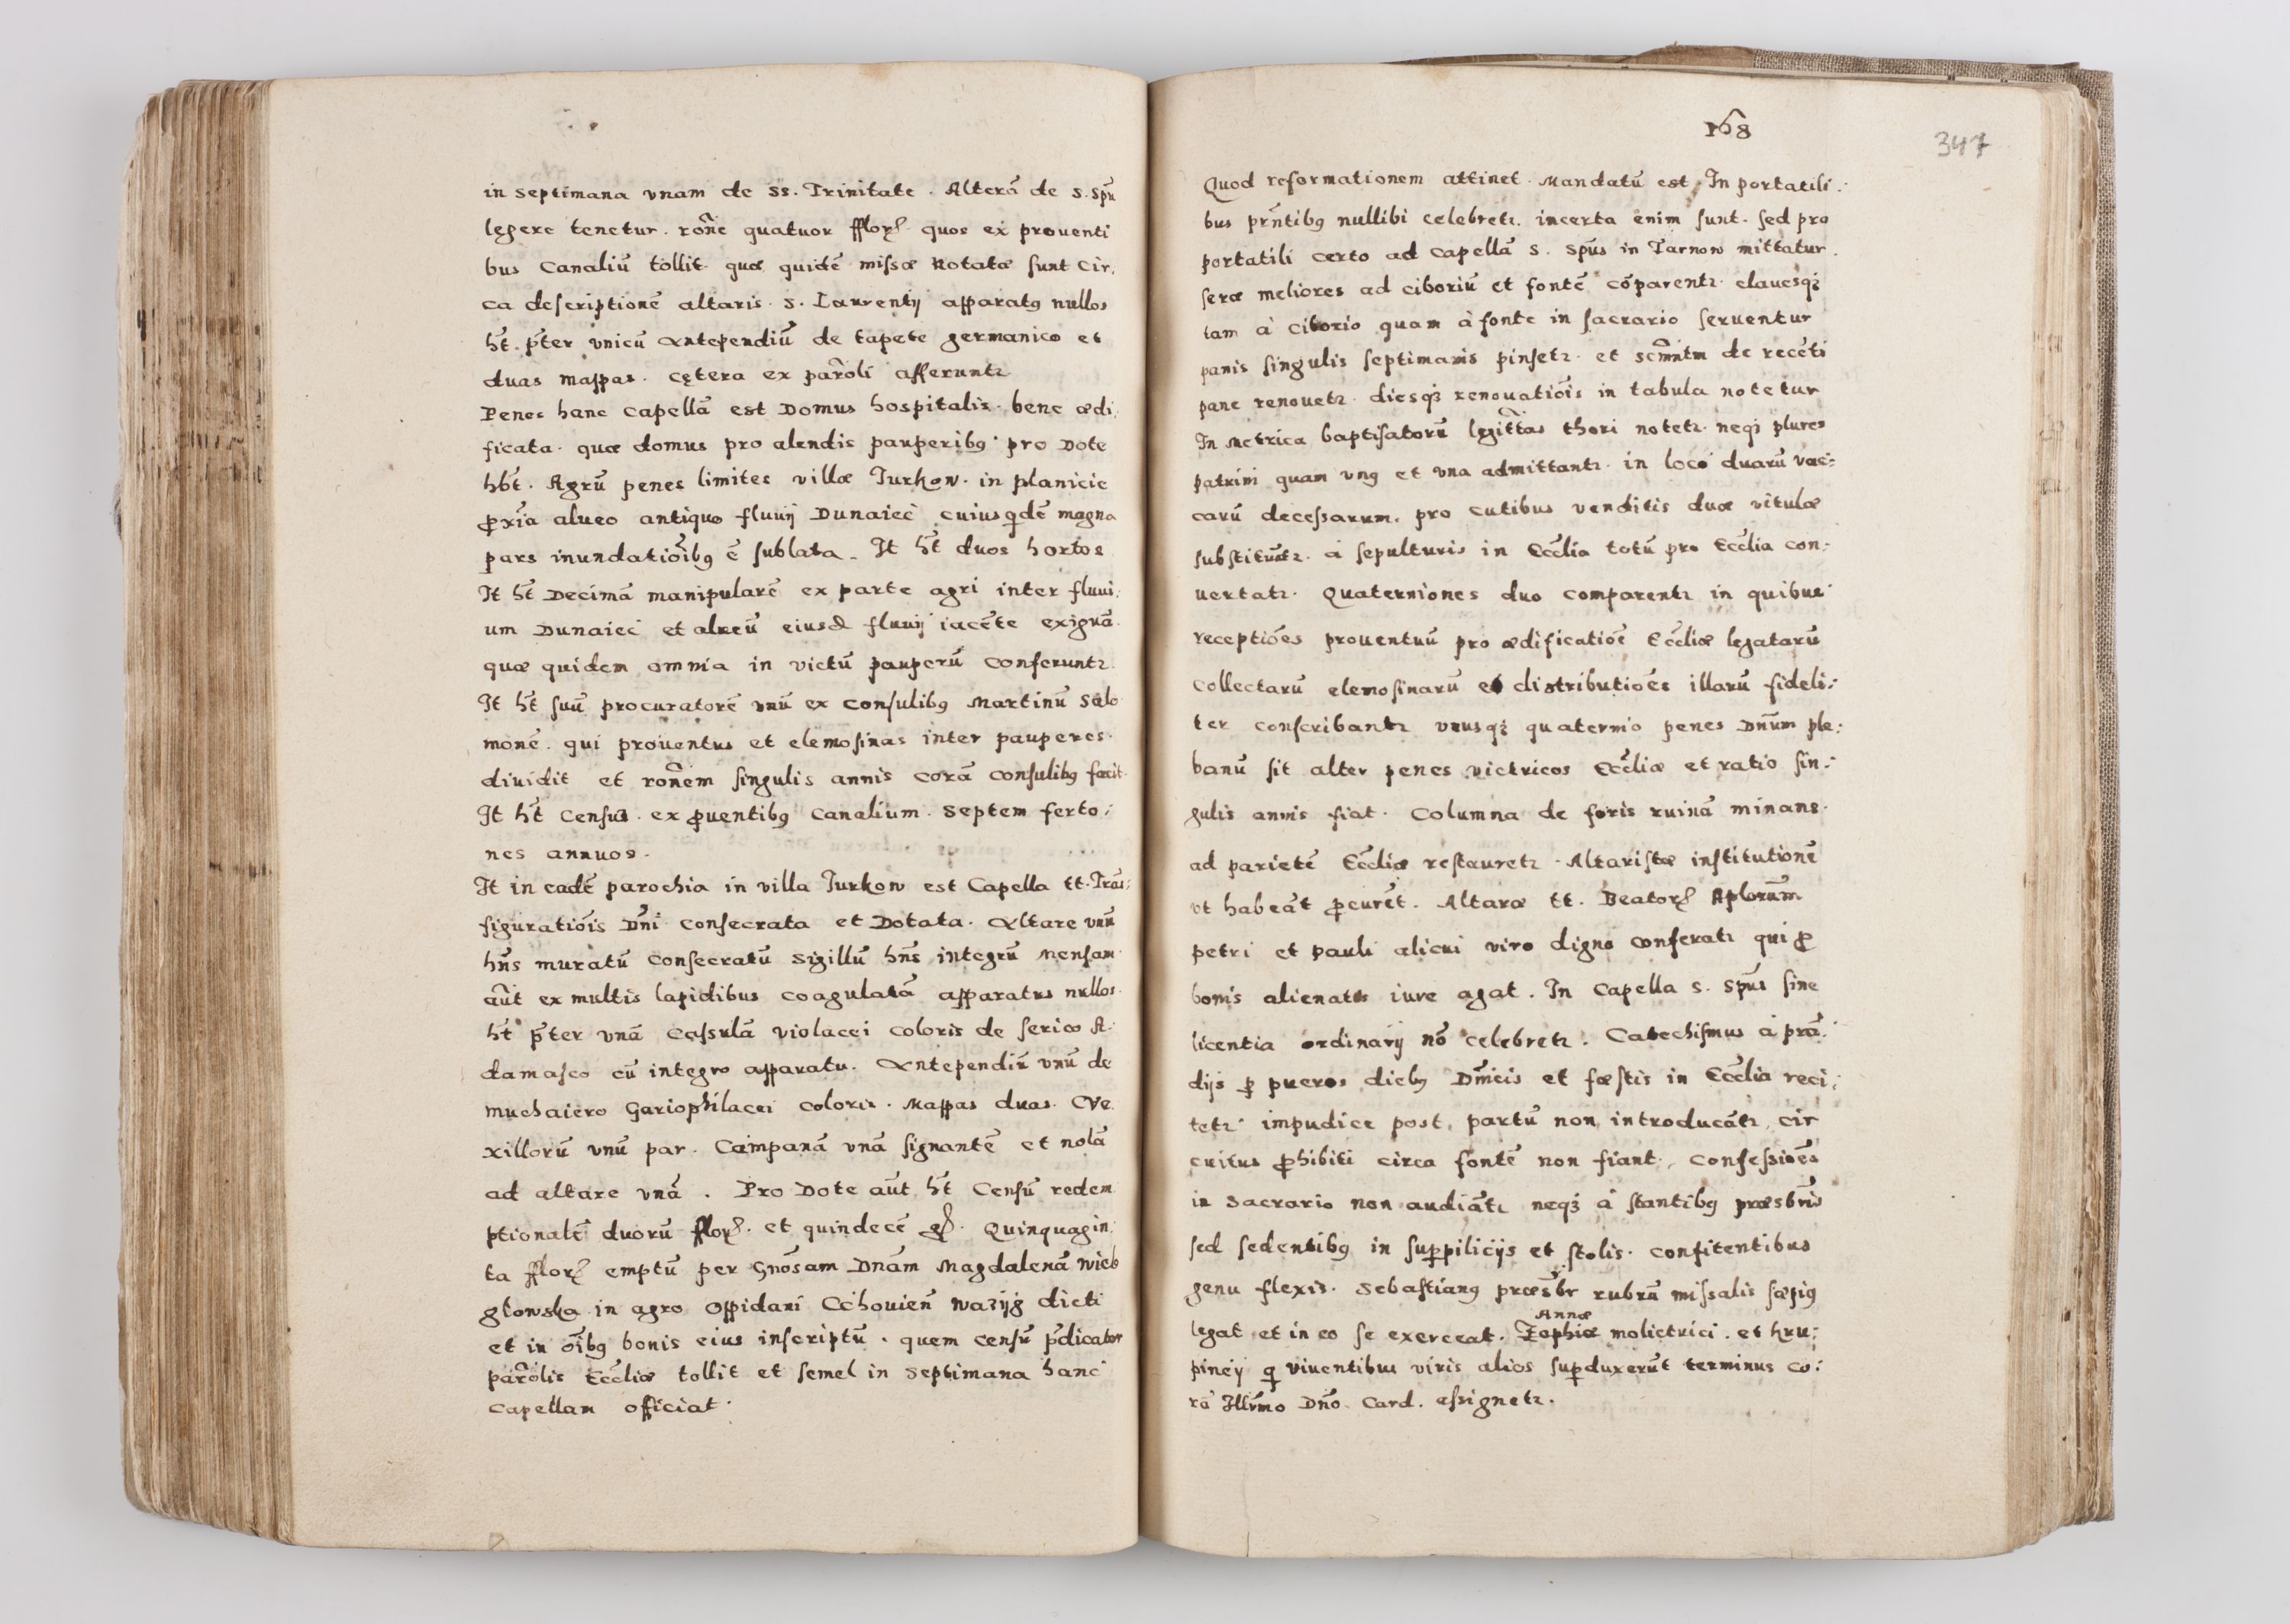 in septimana vnam de SS. Trinitate. Alterā de S. Spū
legere tenetur. rōne quatuor fflor. quos ex prouenti
bus Canaliū tollit. quæ quidē missæ Notatæ sunt Cir,
ca descriptionē altaris. S. Laurentij apparatꝰ nullos
hēt. p̄ter vnicū Antependiū de tapete germanico et
duas mappas. cętera ex parōli afferuntr
Penes hanc Capellā est Domus hospitalis. bene ædi,
ficata. quæ domus pro alendis pauperibꝰ pro Dote
hb̄t. Agrū penes limites villæ Turkow. in planicie
ꝓxīa alueo antiquo fluuij Dunaiec cuius qdē magna
pars inundatiōibꝰ ē sublata. It hēt duos hortos
It hēt Decimā manipularē ex parte agri inter fluui,
um Dunaiec et alueū eiusd fluuij iacēte exiguā.
quæ quidem omnia in victū pauperū Conferuntr.
It hēt suū procuratorē vnū ex Consulibꝰ Martinū Salo
monē. qui prouentus et elemosinas inter pauperes.
diuidit et rōnem singulis annis Corā Consulibꝰ facit.
It hēt Census. ex ꝓuentibꝰ Canalium. Septem ferto,
nes annuos.
It in eadē parochia in villa Turkow est Capella tt. Trās:
figuratiōis Dn̄i Consecrata et Dotata. Altare vnū
hn̄s muratū Consecratū Sigillū hn̄s integrū Mensam
aūt ex multis lapidibus Coagulatā apparatus nullos.
hēt p̄ter vnā Casulā violacei Coloris de serico A,
damasco cū integro apparatu. Antependiū vnū de
muchaiero Gariophilacei Coloris. Mappas duas. Ve
xillorū vnū par. Campanā vnā signantē et nolā
ad altare vnā. Pro Dote aūt hēt Censū redem
ptionalē duorū fflor. et quindecē gr. Quinquagin,
ta fflor emptū per Gnōsam Dnām Magdalenā Wielo
głowska in agro Oppidani Cchouien̄ Wazijg dicti
et in oībꝰ bonis eius inscriptū. quem Censū p̄dicator
parōlis Ecc̄liæ tollit et semel in Septimana hanc
Capellam officiat.
168
347
Quod reformationem attinet. Mandatū est. In portatili:
bus prn̄tibꝰ nullibi Celebretr. incerta enim sunt. sed pro
portatili certo ad Capellā S. Spūs in Tarnow mittatur.
seræ meliores ad ciboriū et fontē cōparentr. clauesqꝫ
tam à Ciborio quam à fonte in sacrario seruentur
panis singulis septimanis pinsetr. et scm̄ntm de recēti
pane renouetr. diesqꝫ renouatiōis in tabula notetur
In Metrica baptisatorū legittās thori notetr. neqꝫ plures
patrini quam vnꝰ et vna admittantr. in loco duarū vac:
carū decessarum. pro cutibus venditis duæ vitulæ
substituātr. à sepulturis in Ecc̄lia totū pro Ecc̄lia con:
uertatr. Quaterniones duo Comparentr in quibus
receptiōes prouentuū pro ædificatiōe Ecc̄liæ legatarū
Collectarū elemosinarū et distributiōes illarū fideli:
ter Conscribantr vnusqꝫ quaternio penes Dn̄um ple:
banū sit alter penes victricos Ecc̄liæ et ratio sin:
gulis annis fiat. Columna de foris ruinā minans.
ad parietē Ecc̄liæ restauretr. Altaristæ institutionē
vt habeāt ꝓcurēt. Altare tt. Beator Aplorum̄
petri et Pauli alicui viro digno Conferatr qui ꝓ
bonis alienatis iure agat. In Capella S. Spūs sine
licentia ordinarij nō Celebretr. Catechismus à prā:
dijs ꝑ pueros diebꝰ Dm̄icis et fæstis in Ecc̄lia reci,
tetr impudicæ post partū non introducātr, cir
cuitus ꝓhibiti circa fontē non fiant, Confessiōes
in Sacrario non audiātr neqꝫ à stantibꝰ præsbr̄is
sed sedentibꝰ in suꝑpilicijs et stolis. Confitentibus
genu flexis. Sebastianꝰ præsb̄r rubrū missalis sæpiꝰ
legat et in eo se exerceat. Annæ Zophiæ molictrici. et hru:
piney q viuentibus viris alios suꝑduxerūt terminus co:
rā Illmo Dn̄o Card. assignetr.